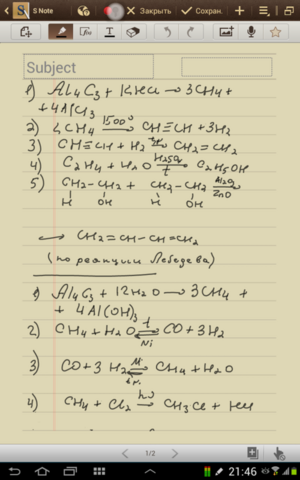 S Note
Закрыть
Сохран.
Subject
1) Al4C3 + 12HCl → 3CH4 +
+ 4AlCl3
2) 2CH4 1500° CH≡CH + 3H2
3) CH≡CH + H2 → CH2=CH2
4) C2H4 + H2O H2SO4 t C2H5OH
5) CH2-CH2 + CH2-CH2 Al2O3 ZnO
H OH H OH
→ CH2=CH-CH=CH2
(по реакции Лебедева)
1) Al4C3 + 12H2O → 3CH4 +
+ 4Al(OH)3
2) CH4 + H2O t ⇌ Ni CO + 3H2
3) CO + 3H2 ⇌ Ni CH4 + H2O
4) CH4 + Cl2 hν → CH3Cl + HCl
1/2
21:46